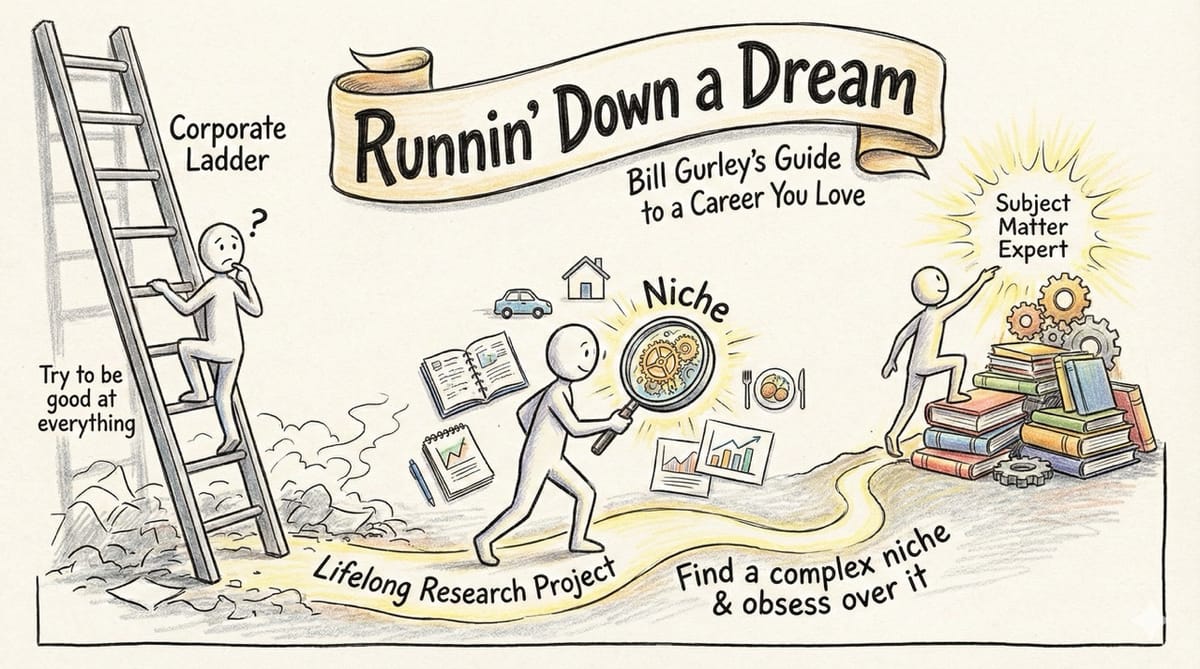 Runnin' Down a Dream
Bill Gurley's Guide
to a Career You Love
Corporate
Ladder
?
Try to be
good at
everything
Niche
Lifelong Research Project
Find a complex niche
& obsess over it
Subject
Matter
Expert